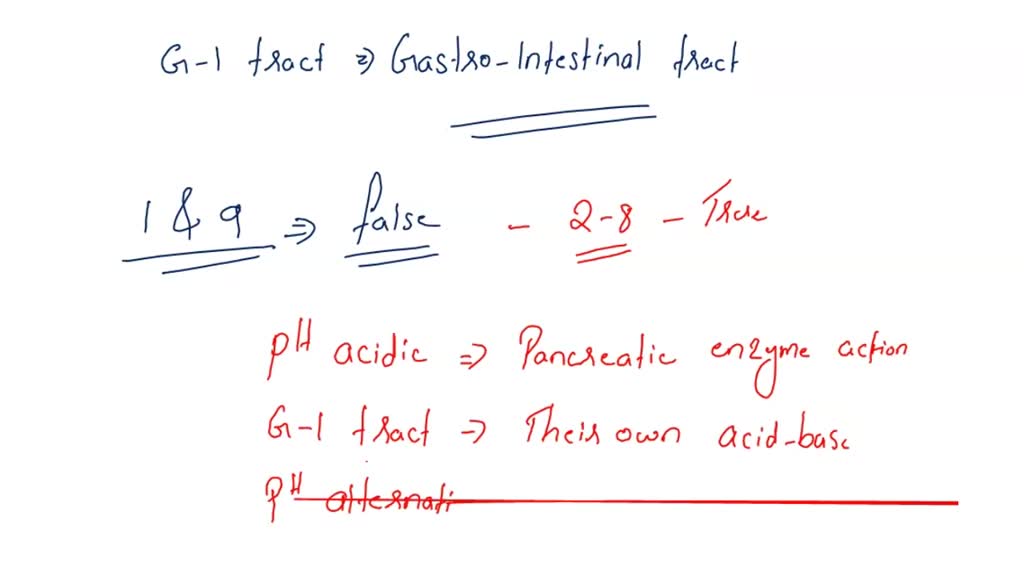 G-I tract ⇒ Gastro-Intestinal tract
1 & 9 ⇒ false - 2-8 - True
pH acidic ⇒ Pancreatic enzyme action
G-I tract → Their own acid-base
pH alternati